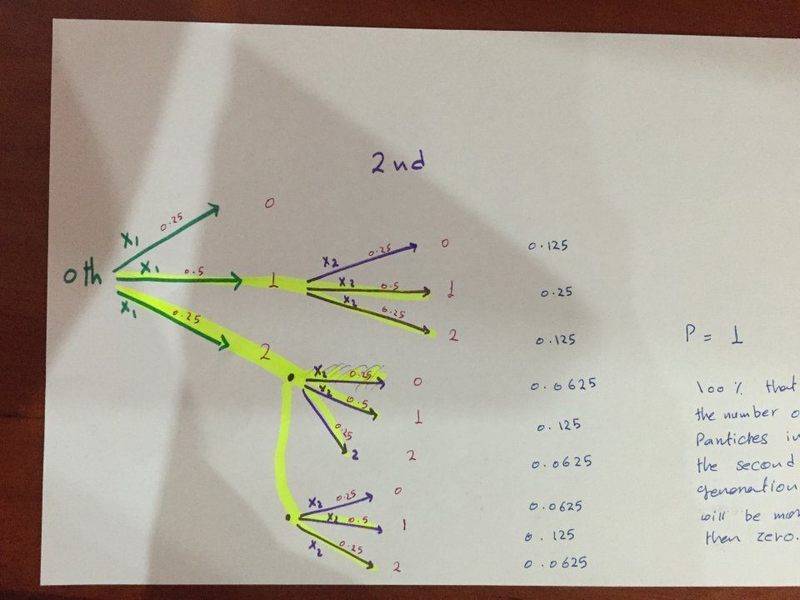 2nd
0
X1 0.25
0th X1 0.5 1
X1 0.25 2
X2 0.25 0 0.125
X2 0.5 1 0.25
X2 0.25 2 0.125
X2 0.25 0 0.0625
X2 0.5 1 0.125
0.25 2 2 0.0625
X2 0.25 0 0.0625
X2 0.5 1 0.125
X2 0.25 2 0.0625
P = 1
100% that
the number o
Particles in
the second
generation
will be mor
then zero.